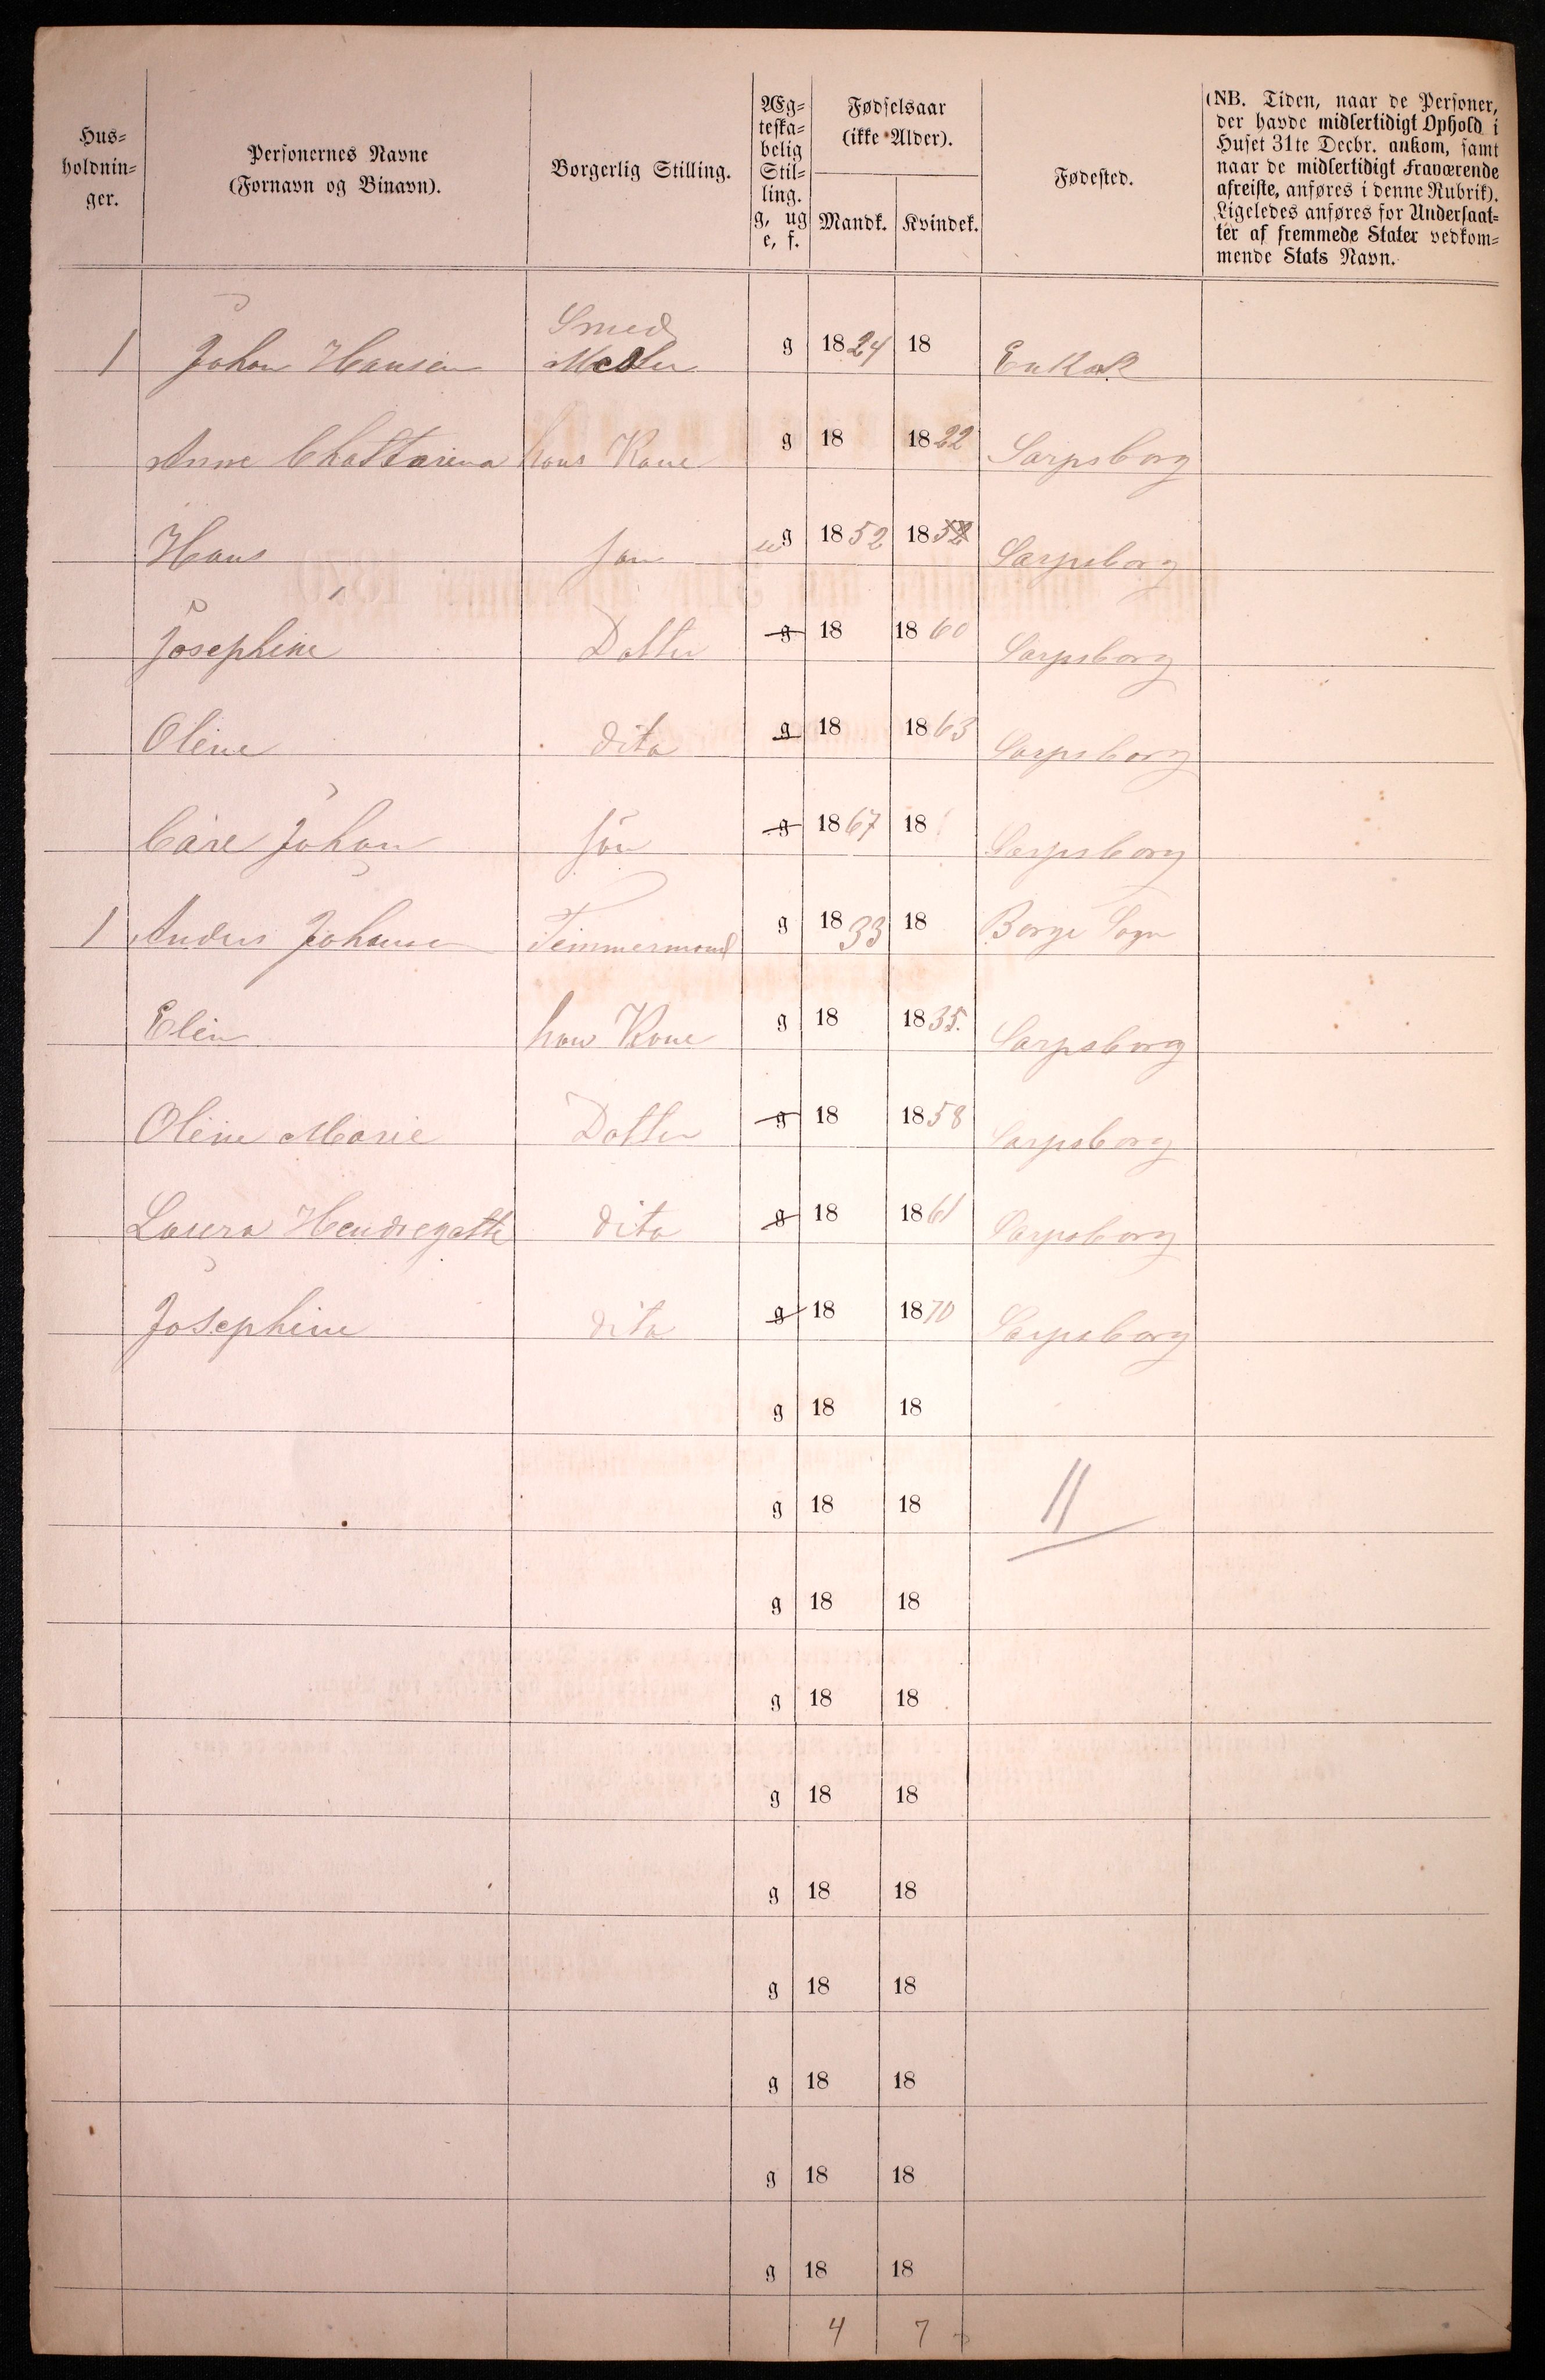 Hus-
holdnin-
ger.
Personernes Navne
(Fornavn og Binavn).
Borgerlig Stilling.
Æg-
teska-
belig
Stil-
ling.
g, ug
e, f.
Fødselsaar
(ikke Alder).
Mandk. Kvindek.
Fødested.
(NB. Tiden, naar de Personer,
der havde midlertidigt Ophold i
Huset 31te Decbr. ankom, samt
naar de midlertidigt Fraværende
afreiste, anføres i denne Rubrik).
Ligeledes anføres for Undersaat-
ter af fremmede Stater vedkom-
mende Stats Navn.
Smed
1 Johan Hansen g 1824 18
Anne Chattarina hans Kone g 18 1822 Sarpsborg
Hans Søn ug 1852 1852 Sarpsborg
Josephine Datter g 18 1860 Sarpsborg
Oline dito g 18 1863 Sarpsborg
Carl Johan Søn g 1867 18 Sarpsborg
1 Anders Johansen Timmermand g 1833 18 Borge Sogn
Elin hans Kone g 18 1835. Sarpsborg
Oline Marie Datter g 18 1858 Sarpsborg
Laura Hendregatte dito g 18 1861 Sarpsborg
Josephine dito g 18 1870 Sarpsborg
g 18 18
g 18 18 11
g 18 18
g 18 18
g 18 18
g 18 18
g 18 18
g 18 18
g 18 18
g 18 18
4 7